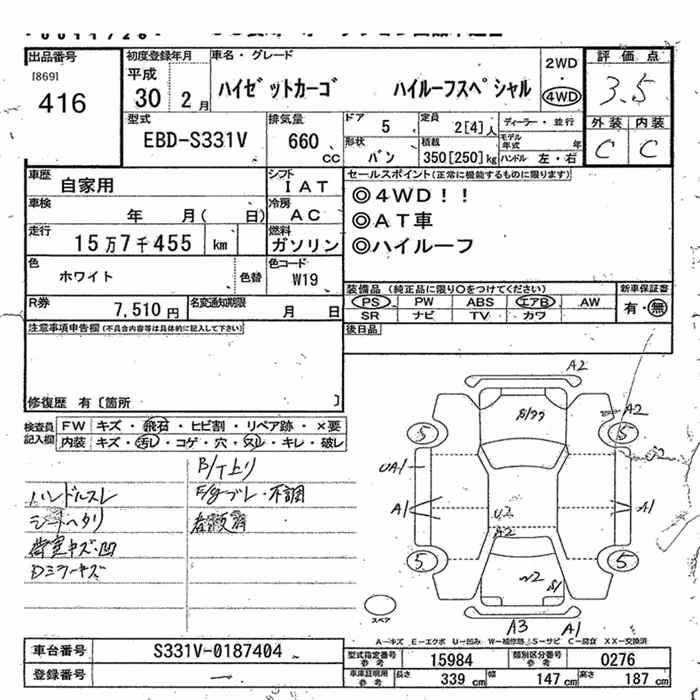 出品番号
[869]
416
初度登録年月
平成
30 2月
車名・グレード
ハイゼットカーゴ ハイルーフスペシャル
2WD
・
4WD
評価点
3.5
外装 内装
C C
型式
EBD-S331V
排気量
660 CC
ドア
5
形状
バン
定員
2[4]人
積載
350[250]kg
ディーラー・並行
モデル年式 年
ハンドル 左・右
車歴
自家用
シフト
IAT
車検
年 月( 日)
冷房
AC
走行
15万7千455 km
燃料
ガソリン
色
ホワイト
色替
色コード
W19
R券
7,510円
名変通知期限
月 日
セールスポイント(正常に機能するものに限ります)
◎4WD!!
◎AT車
◎ハイルーフ
装備品(純正品に限り○をつけてください)
PS PW ABS エアB AW
SR ナビ TV カワ
新車保証書
有・無
後日品
注意事項申告欄(不具合内容等は具体的に記入して下さい)
修復歴 有〔箇所 〕
検査員記入欄
FW キズ・飛石・ヒビ割・リペア跡・×要
内装 キズ・汚レ・コゲ・穴・スレ・キレ・破レ
B/T上り
ハンドルスレ
E/gブレ・不調
シートヘタリ
荷室キズ・凹
Dミラーキズ
A2
A2
5
5
UA1
A1
A1
U2
A2
5
5
S1
A3 A1
スペア
A-キズ E-エクボ U-凹み W-補修跡 S-サビ C-腐食 XX-交換済
車台番号
S331V-0187404
登録番号
型式指定番号
参考
15984
類別区分番号
参考
0276
車庫証明用
参考
長さ
339 cm
幅
147 cm
高さ
187 cm